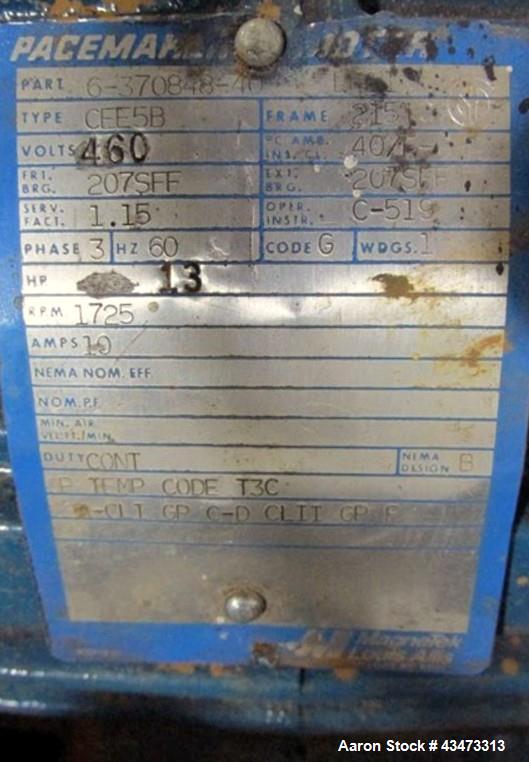 PACEMAKER MOTOR
PART 6-370848-40
TYPE CEE5B FRAME 215T
VOLTS 460 °C AMB. INS. CL. 40/
FRT. BRG. 207SFF EXT. BRG. 207SFF
SERV. FACT. 1.15 OPER. INSTR. C-519
PHASE 3 HZ 60 CODE G WDGS. 1
HP 13
R.P.M 1725
AMPS 10
NEMA NOM. EFF.
NOM. P.F.
MIN. AIR VEL. FT./MIN.
DUTY CONT NEMA DESIGN B
TEMP CODE T3C
-CLI GP C-D CLII GP F
MagneTek
Aaron Stock # 43473313